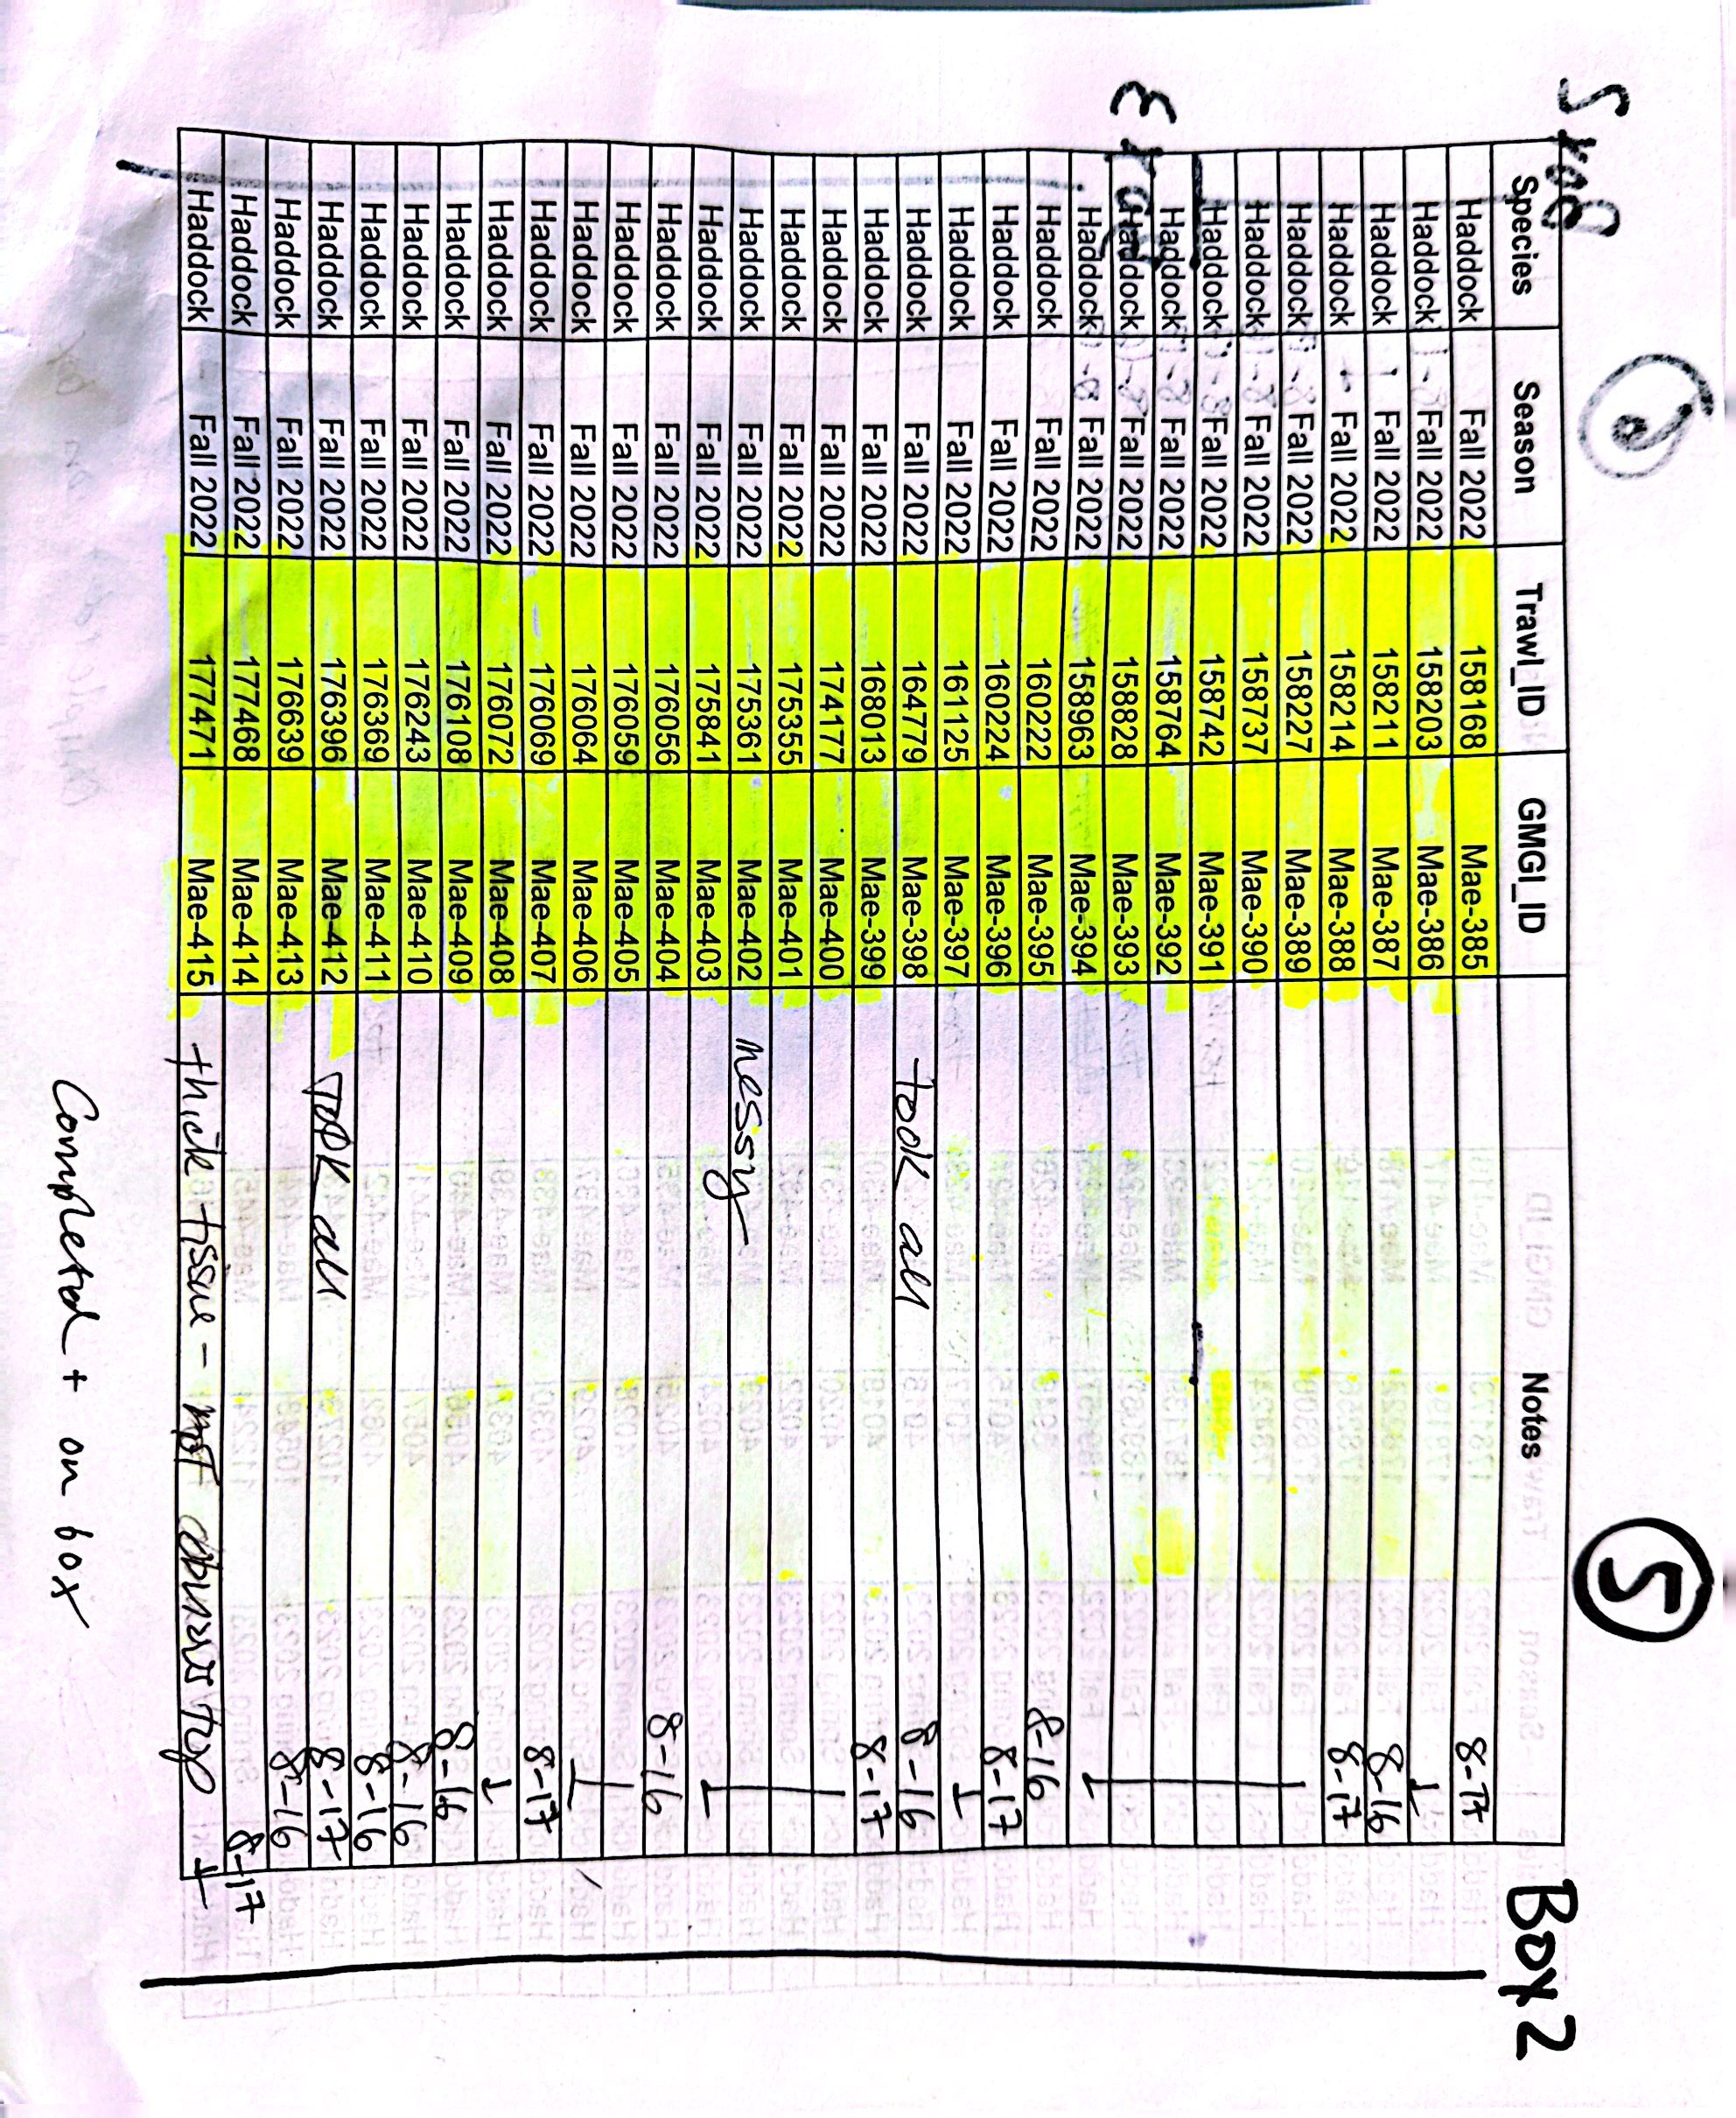 5 Box 2
Species Season Trawl_ID GMGI_ID Notes
Haddock Fall 2022 158168 Mae-385 8-17
Haddock Fall 2022 158203 Mae-386
Haddock Fall 2022 158211 Mae-387 8-16
Haddock Fall 2022 158214 Mae-388 8-17
Haddock Fall 2022 158227 Mae-389
Haddock Fall 2022 158737 Mae-390
Haddock Fall 2022 158742 Mae-391
Haddock Fall 2022 158764 Mae-392
Haddock Fall 2022 158828 Mae-393
Haddock Fall 2022 158963 Mae-394
Haddock Fall 2022 160222 Mae-395 8-16
Haddock Fall 2022 160224 Mae-396 8-17
Haddock Fall 2022 161125 Mae-397
Haddock Fall 2022 164779 Mae-398 took all 8-16
Haddock Fall 2022 168013 Mae-399 8-17
Haddock Fall 2022 174177 Mae-400
Haddock Fall 2022 175355 Mae-401
Haddock Fall 2022 175361 Mae-402 messy
Haddock Fall 2022 175841 Mae-403
Haddock Fall 2022 176056 Mae-404 8-16
Haddock Fall 2022 176059 Mae-405
Haddock Fall 2022 176064 Mae-406
Haddock Fall 2022 176069 Mae-407 8-17
Haddock Fall 2022 176072 Mae-408
Haddock Fall 2022 176108 Mae-409 8-16
Haddock Fall 2022 176243 Mae-410 8-16
Haddock Fall 2022 176369 Mae-411 8-16
Haddock Fall 2022 176396 Mae-412 TOOK all 8-17
Haddock Fall 2022 176639 Mae-413 8-16
Haddock Fall 2022 177468 Mae-414 8-17
Haddock Fall 2022 177471 Mae-415 thick tissue - not
Completed + on box